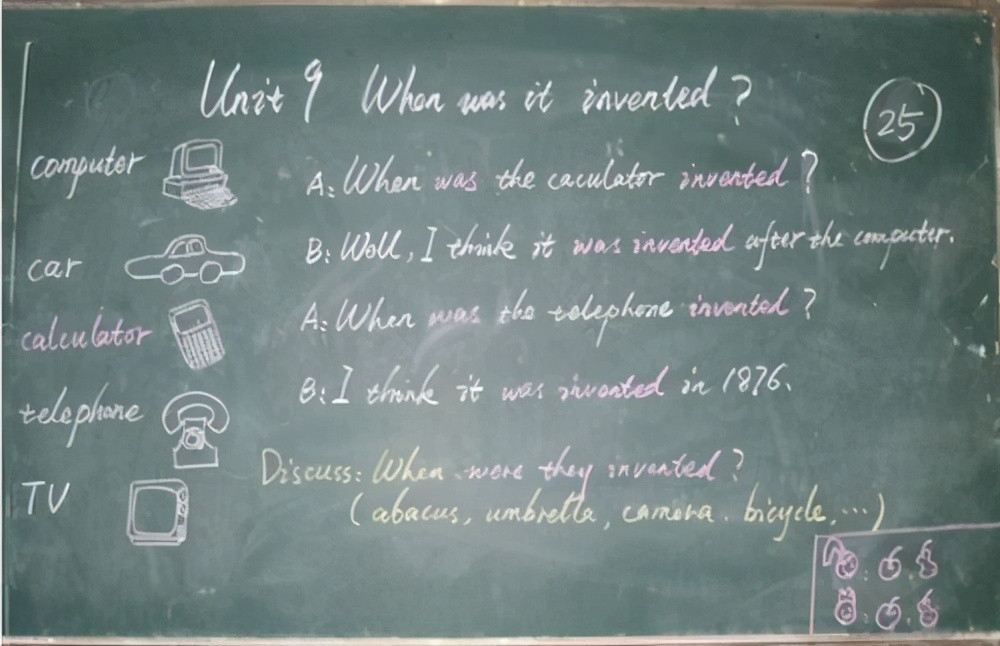 Unit 9 When was it invented?
25
computer
A: When was the caculator invented?
B: Well, I think it was invented after the computer.
car
A: When was the telephone invented?
calculator
B: I think it was invented in 1876.
telephone
Discuss: When were they invented?
TV
(abacus, umbrella, camera. bicycle, ...)